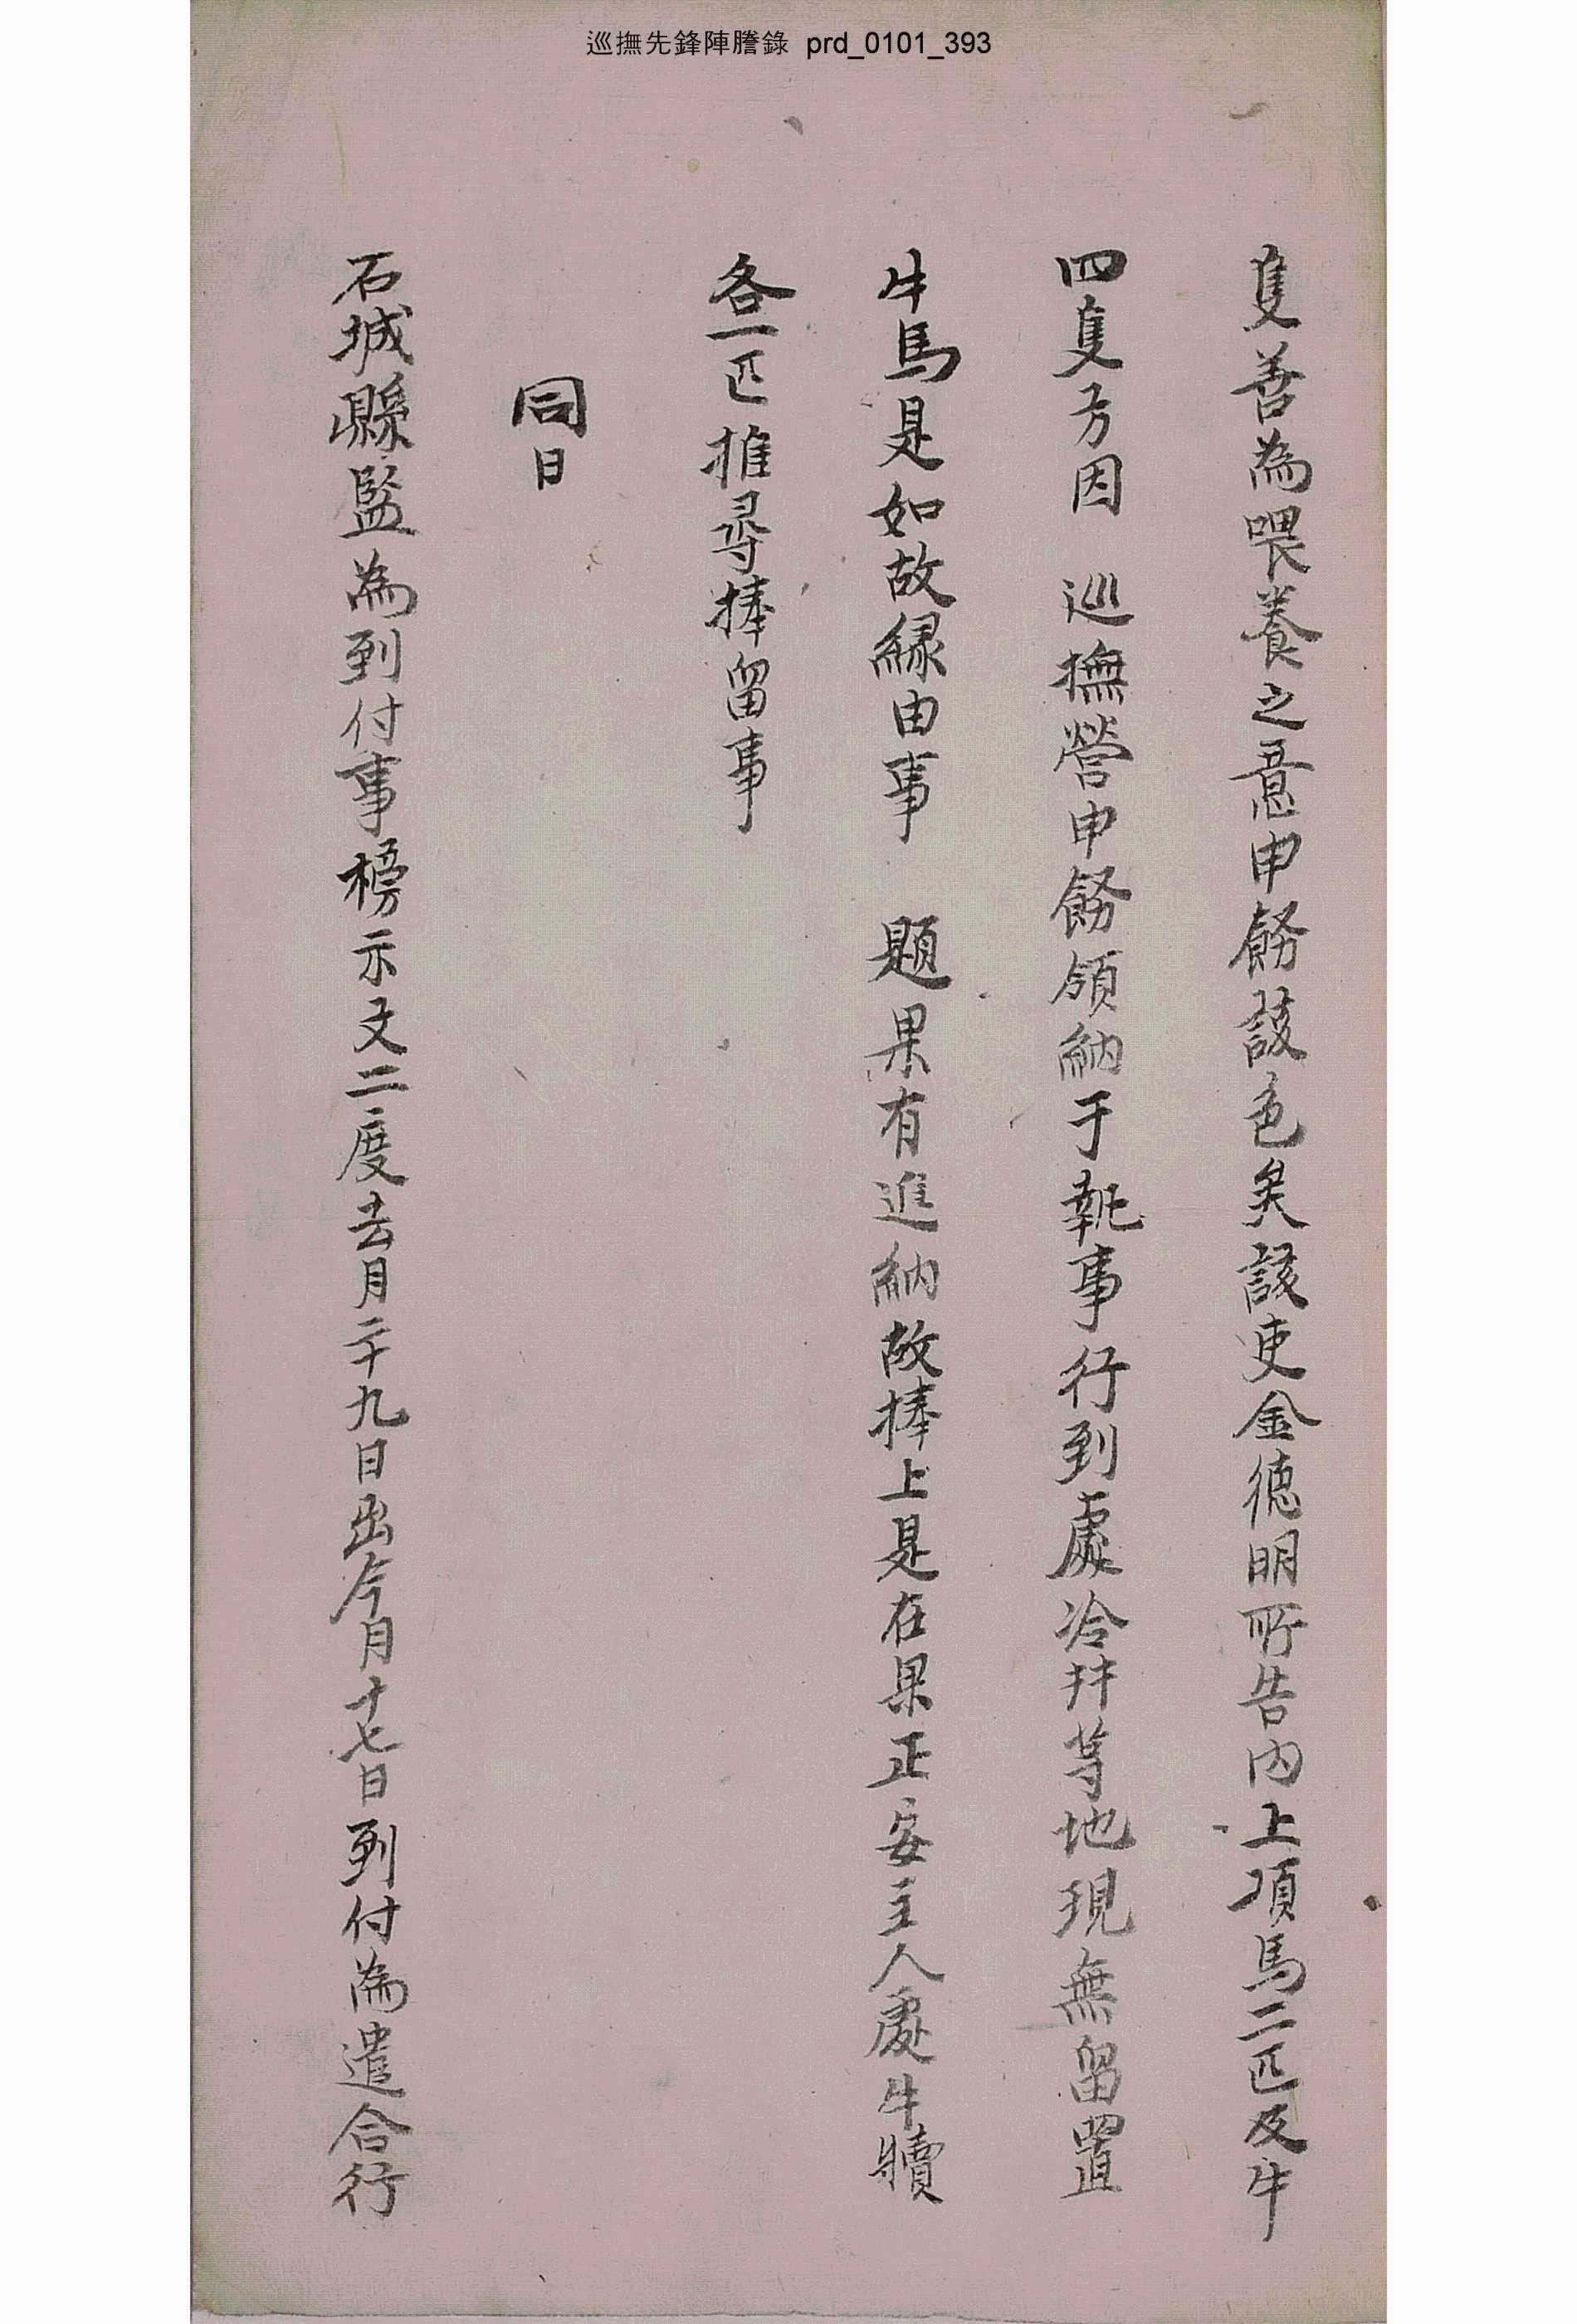 巡撫先鋒陣謄錄 prd_0101_393
隻善為喂養之意申飭該色矣該吏金德明所告內上項馬二匹及牛
四隻方因 巡撫營申飭領納于執事行到處冷井等地現無留置
牛馬是如故緣由事 題果有進納故捧上是在果正安主人處牛犢
各一匹推尋捧留事
同日
石城縣監為到付事榜示文二度去月二十九日出今月十七日到付為遣合行